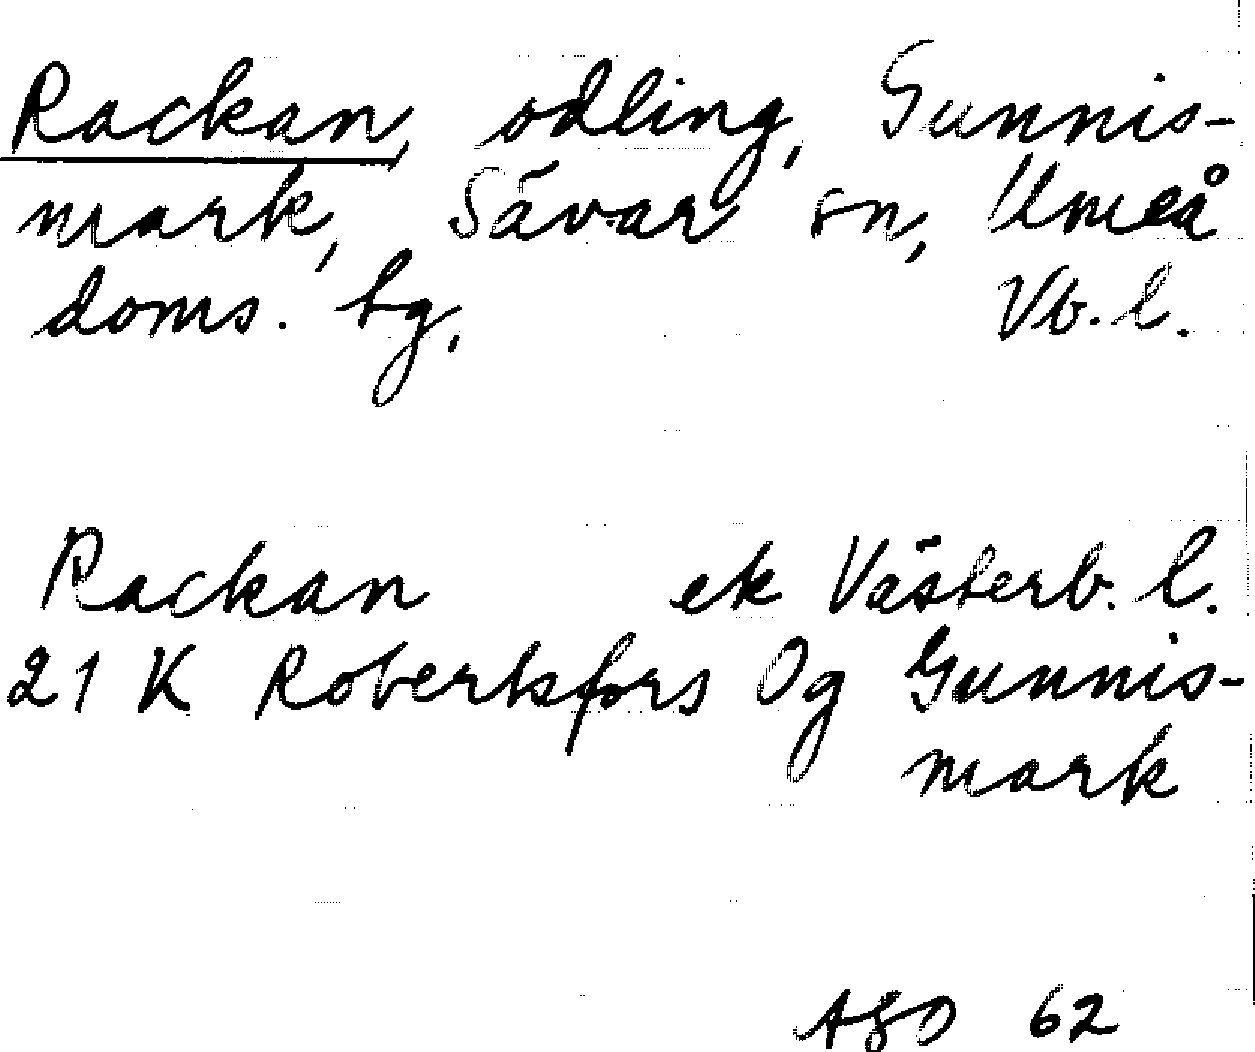 Rackan, odling, Gunnis-
mark, Sävar sn, Umeå
doms. tg, Vb. l.
Rackan ek Västerb. l.
21 K Robertsfors Og Gunnis-
mark
ASO 62